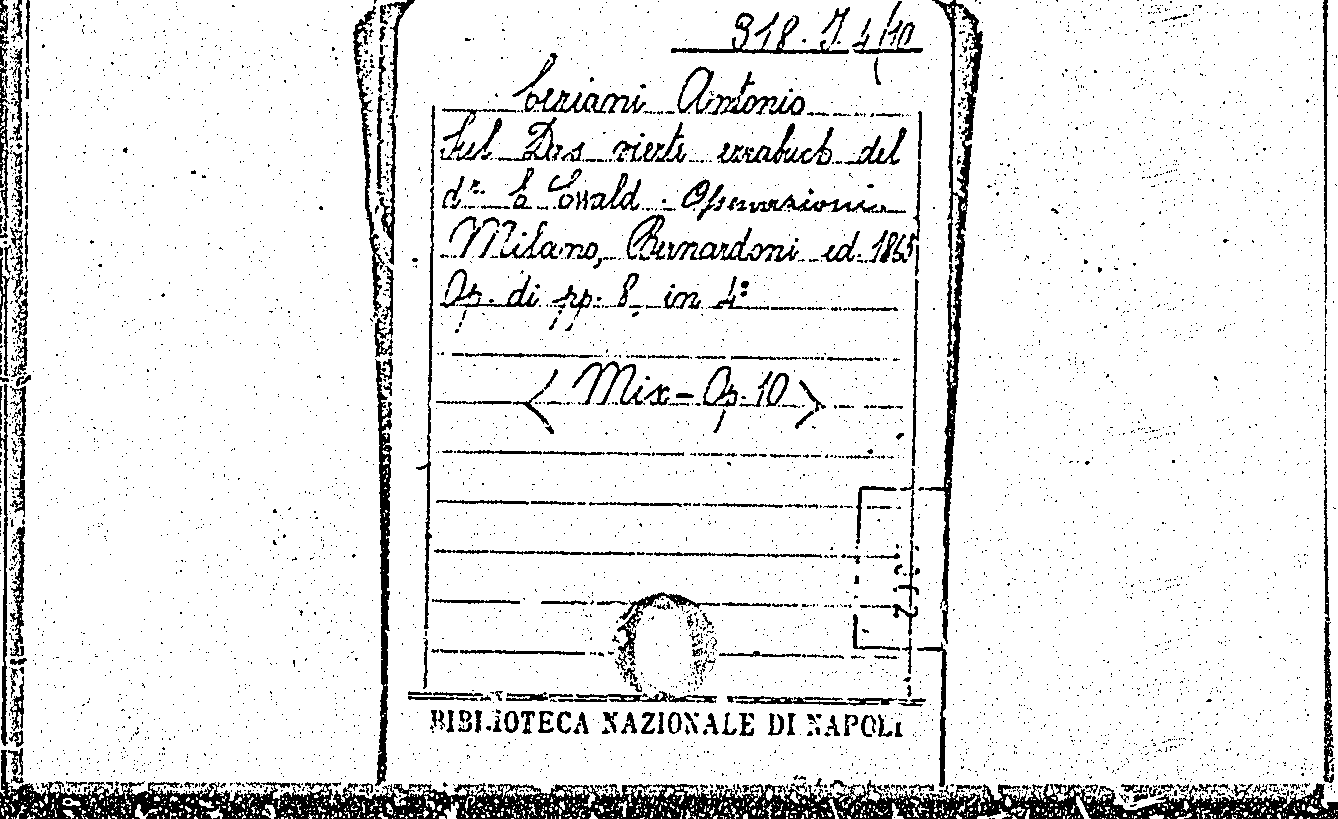 318. J. 4/10
Ceriani Antonio
Sul Das vierte ezrabuch del
dr. E Ewald. Osservazioni
Milano, Bernardoni ed. 1865
Op. di pp. 8, in 4°
< Mix - Op. 10 >
BIBLIOTECA NAZIONALE DI NAPOLI